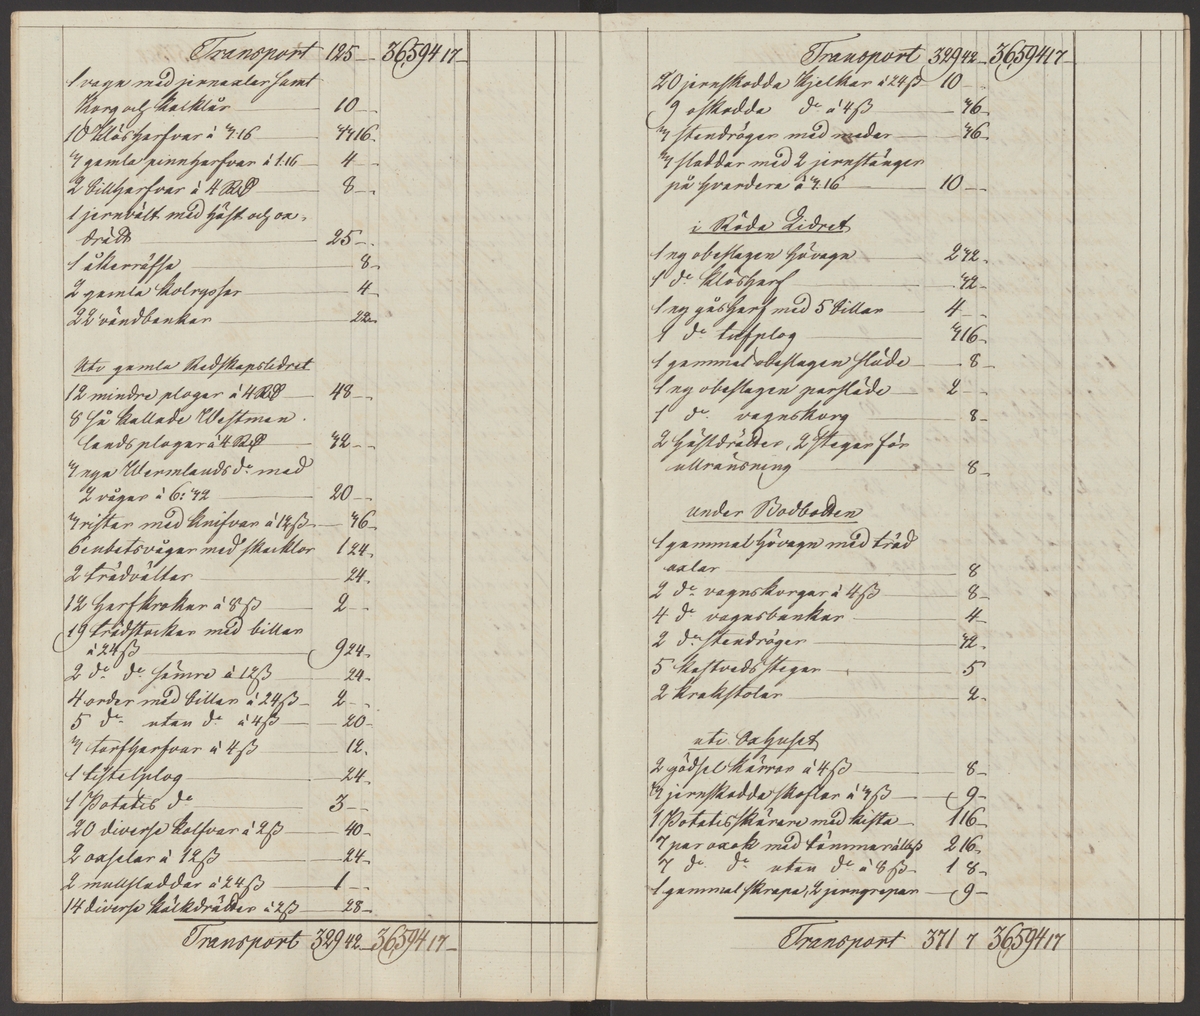 Transport 125 — 36,594 17 —
1 vagn med jernaxlar samt
korg och kalklår — 10 —
10 klösharfvar à 3.16 — 33 16
3 gamla pinnharfvar à 1.16 — 4 —
2 billharfvar à 4 RD — 8 —
1 jernvält med häst och ox-
drätt — 25 —
1 åkerräfsa — 8 —
2 gamla kolryssar — 4 —
22 vändbankar — 22 —
Uti gamla Redskapslidret
12 mindre plogar à 4 RD — 48 —
8 så kallade Westman-
lands plogar à 4 RD — 32 —
3 nya Wermlands do med
2 vågar à 6: 32 — 20 —
3 rister med knifvar à 12 ß — 36 —
6 enbetsvågar med skacklor 1 24
2 trädvältar — 24
12 harfkrokar à 8 ß — 2 —
19 trädstockar med billar
à 24 ß — 9 24
2 do do sämre à 12 ß — 24
4 order med billar à 24 ß — 2 —
5 do utan do à 4 ß — 20 —
3 torfharfvar à 4 ß — 12
1 tistelplog — 24
1 Potatis do — 3 —
20 diverse kolfvar à 2 ß — 40 —
2 oxselar à 12 ß — 24 —
2 mullsladdar à 24 ß — 1 —
14 diverse kälkdrätter à 2 ß — 28 —
Transport 329 42 — 36,594 17 —
Transport 329 42 — 36,594 17
20 jernskodda kjelkar à 24 ß 10 —
9 oskodda do à 4 ß — 36
3 stendrögar med medar — 36
3 sladdar med 2 jernstänger
på hvardera à 3.16 — 10 —
i Röda Lidret
1 ny obeslagen hövagn — 2 32
1 do klösharf — 32
1 ny gåsharf med 5 billar — 4 —
1 do tufplog — 3 16
1 gammal obeslagen släde — 8 —
1 ny obeslagen parsläde — 2 —
1 do vagnskorg — 8
2 hästdrätter, 2 stegar för
ullransning — 8
under Bodbotten
1 gammal hövagn med träd
axlar — 8
2 do vagnskorgar à 4 ß — 8
4 do vagnsbankar — 4
2 do stendrögar — 32
5 Kastveds stegar — 5
2 krakstolar — 2
uti Oxhuset
2 gödselkärror à 4 ß — 8 —
3 jernskodda skoflar à 3 ß — 9 —
1 Potatisskärare med kista 1 16
7 par oxok med tömmar à 16 ß 2 16
7 do do utan do à 8 ß 1 8
1 gammal skrapa, 2 jerngrepar — 9 —
Transport 371 7 36,594 17